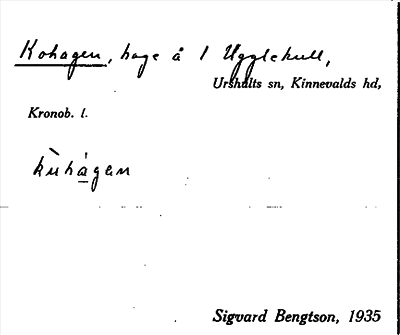 Kohagen, hage å 1 Ugglekull,
Urshults sn, Kinnevalds hd,
Kronob. l.
kùhágen
Sigvard Bengtson, 1935